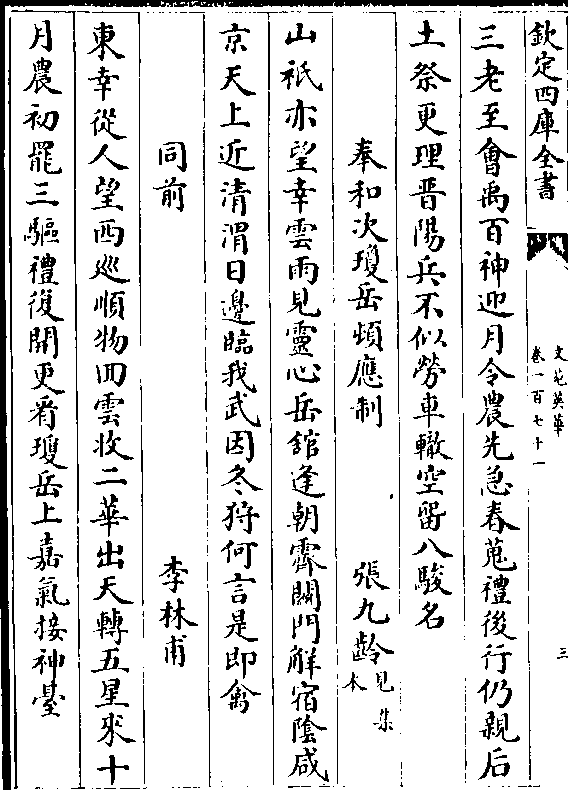 欽定四庫全書
文苑英華
卷一百七十一
三
三老至會禹百神迎月令農先急春蒐禮後行仍親后
土祭更理晉陽兵不似勞車轍空留八駿名
奉和次瓊岳頓應制 張九齡見集本
山祇亦望幸雲雨見靈心岳館逢朝霽關門解宿陰咸
京天上近清渭日邊臨我武因冬狩何言是即禽
同前 李林甫
東幸從人望西巡順物回雲收二華出天轉五星來十
月農初罷三驅禮復開更看瓊岳上嘉氣接神臺